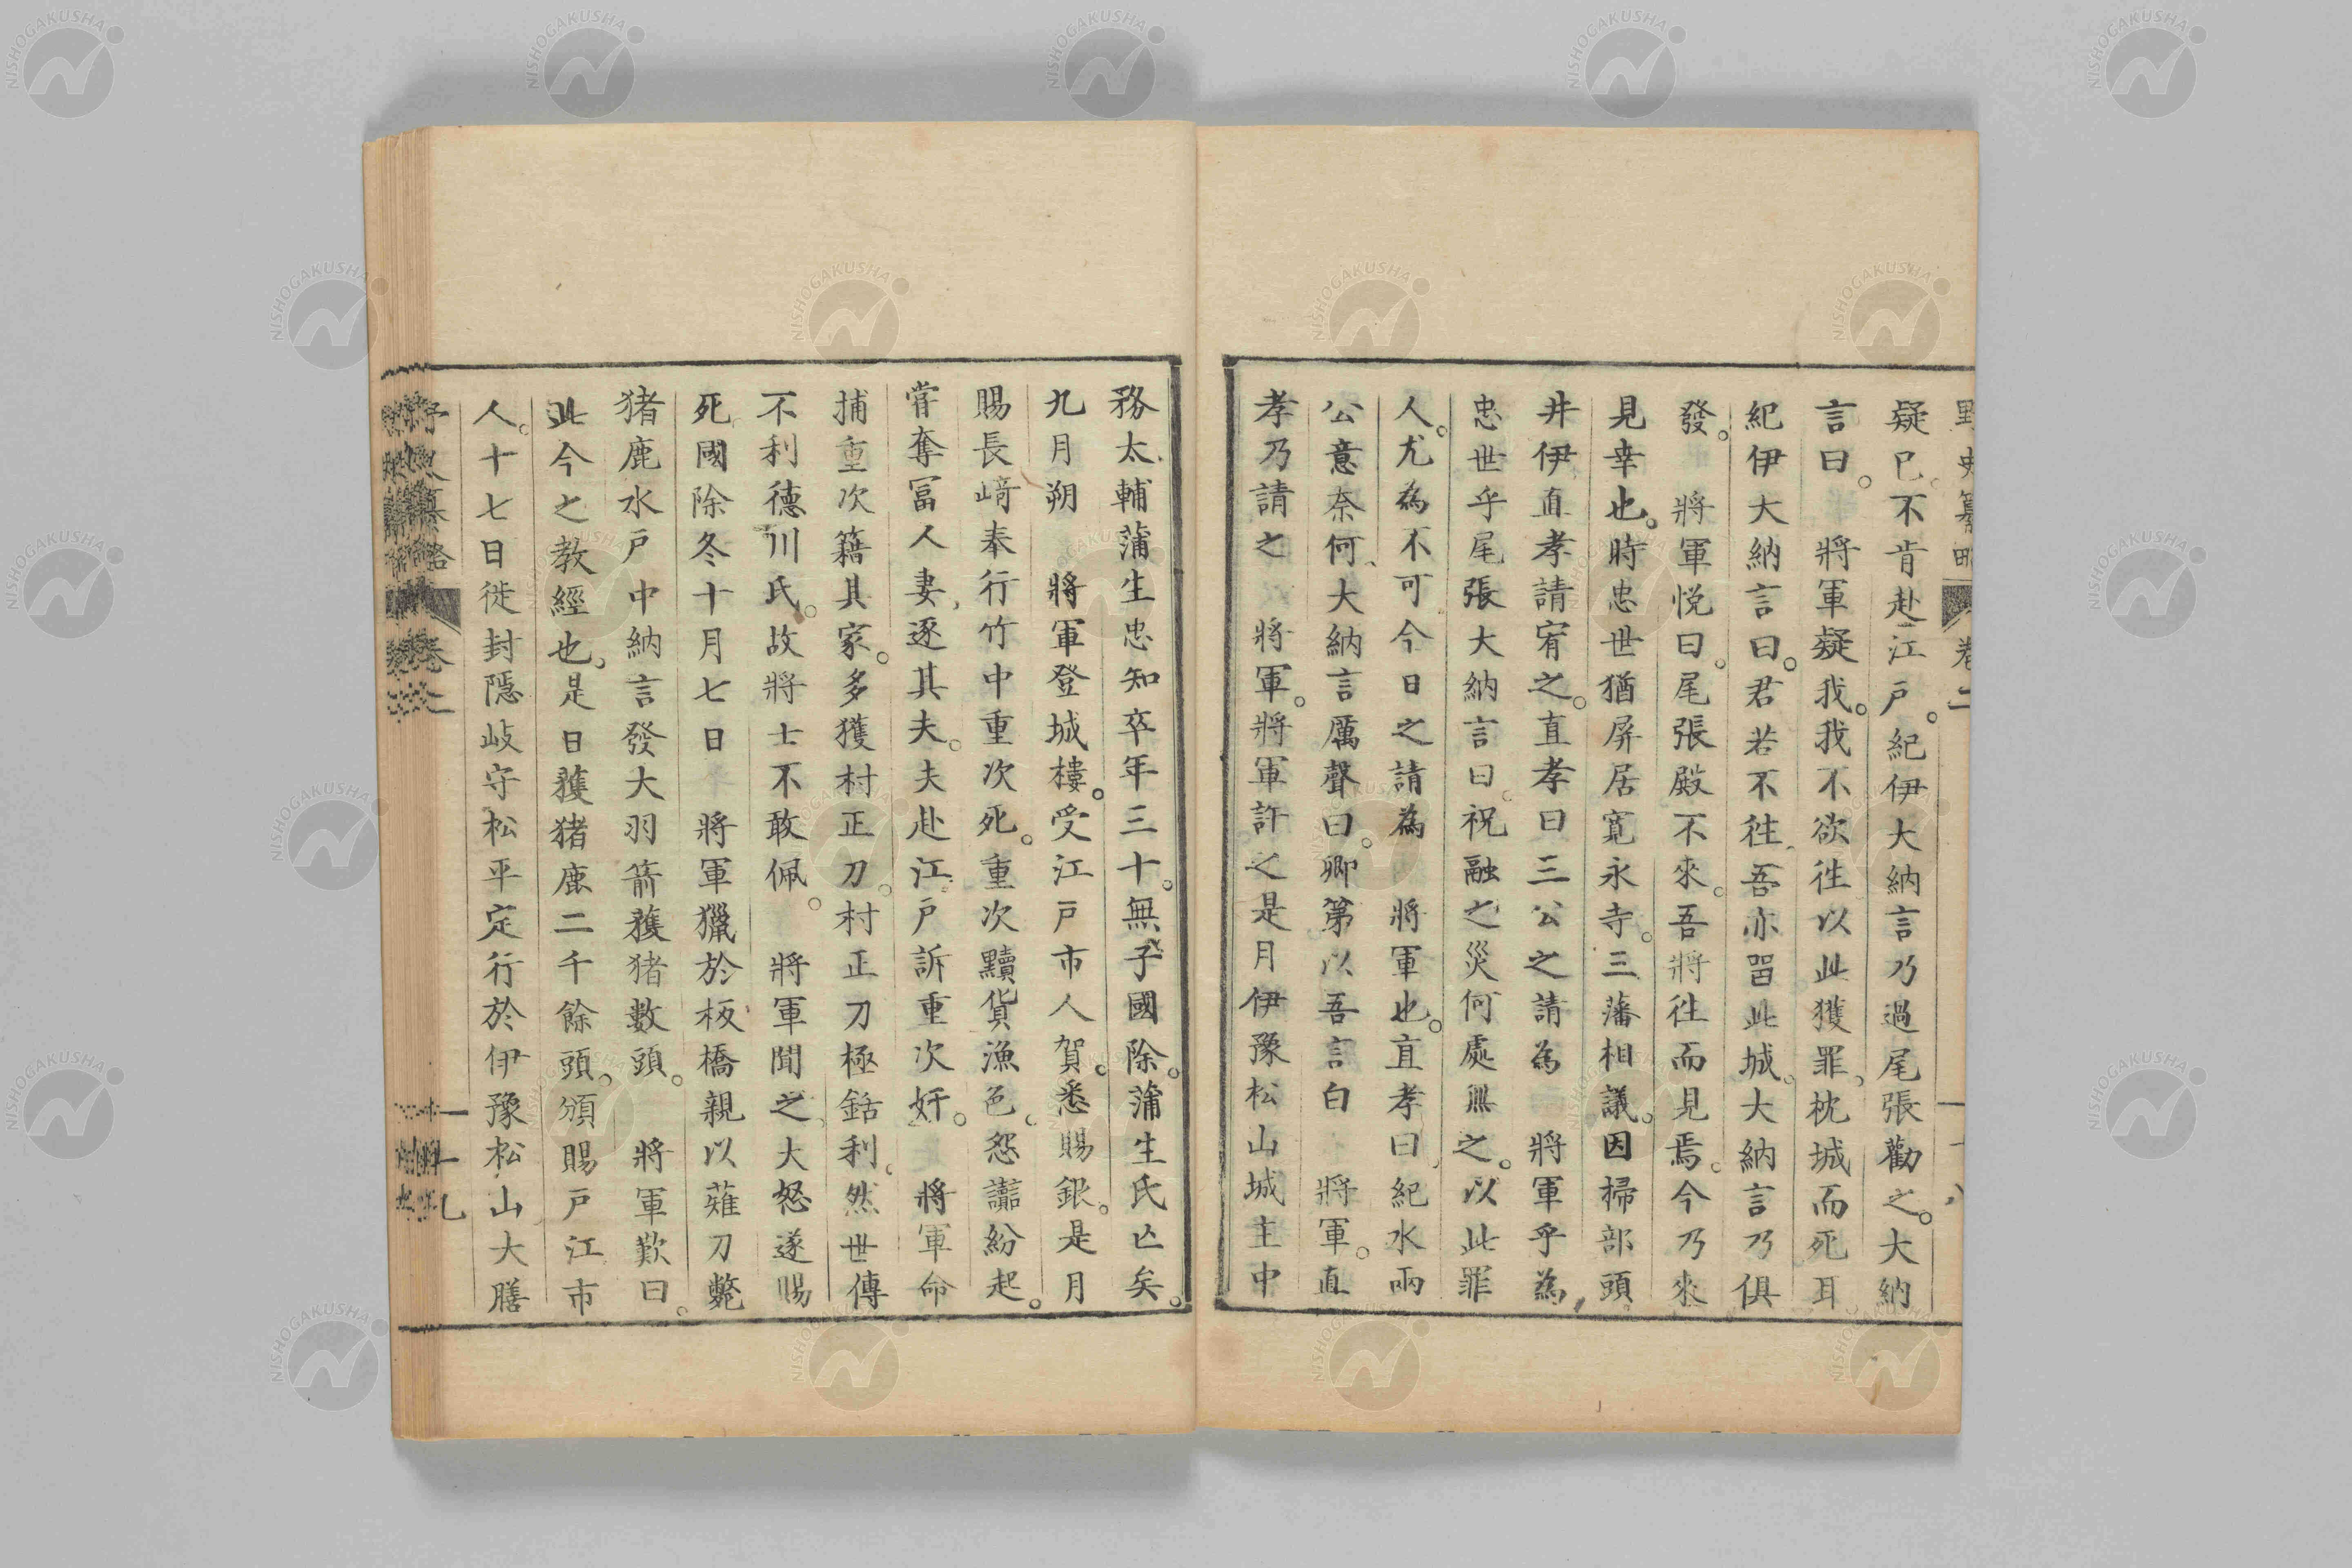 野史纂略 卷二 十八
疑已不肯赴江戸。紀伊大納言乃過尾張勸之。大納
言曰。將軍疑我。我不欲徃以此獲罪。枕城而死耳
紀伊大納言曰。君若不徃吾亦畱此城。大納言乃俱
發。將軍悦曰。尾張殿不來。吾將徃而見焉。今乃來
見幸也。時忠世猶屏居寛永寺。三藩相議。因掃部頭
井伊直孝請宥之。直孝曰三公之請為 將軍乎為
忠世乎尾張大納言曰。祝融之災何處無之。以此罪
人。尤為不可今日之請為 將軍也。直孝曰紀水兩
公意奈何大納言厲聲曰。卿第以吾言白 將軍。直
孝乃請之 將軍。將軍許之是月伊豫松山城主中
務太輔蒲生忠知卒年三十。無子國除。蒲生氏亡矣。
九月朔 將軍登城樓。受江戸市人賀。悉賜銀。是月
賜長﨑奉行竹中重次死。重次黷貨漁色。怨讟紛起。
嘗奪冨人妻逐其夫。夫赴江戸訴重次奸。將軍命
捕重次籍其家。多獲村正刀。村正刀極銛利。然世傳
不利德川氏。故將士不敢佩。 將軍聞之大怒遂賜
死國除冬十月七日 將軍獵於板橋親以薙刀斃
猪鹿水戸中納言發大羽箭獲猪數頭。 將軍歎曰。
此今之教經也。是日獲猪鹿二千餘頭。頒賜戸江市
人。十七日徙封隱岐守松平定行於伊豫松山大膳
野史纂略 卷二 十九